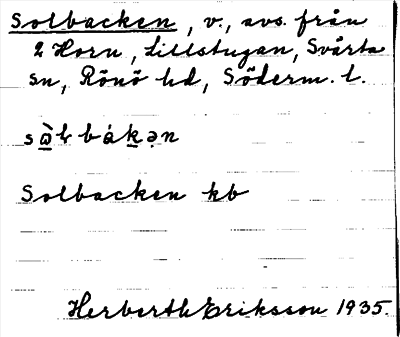 Solbacken, v., avs. från
2 Horn, Lillstugan, Svärta
sn, Rönö hd, Söderm. l.
Solbacken kb
Herberth Eriksson 1935.